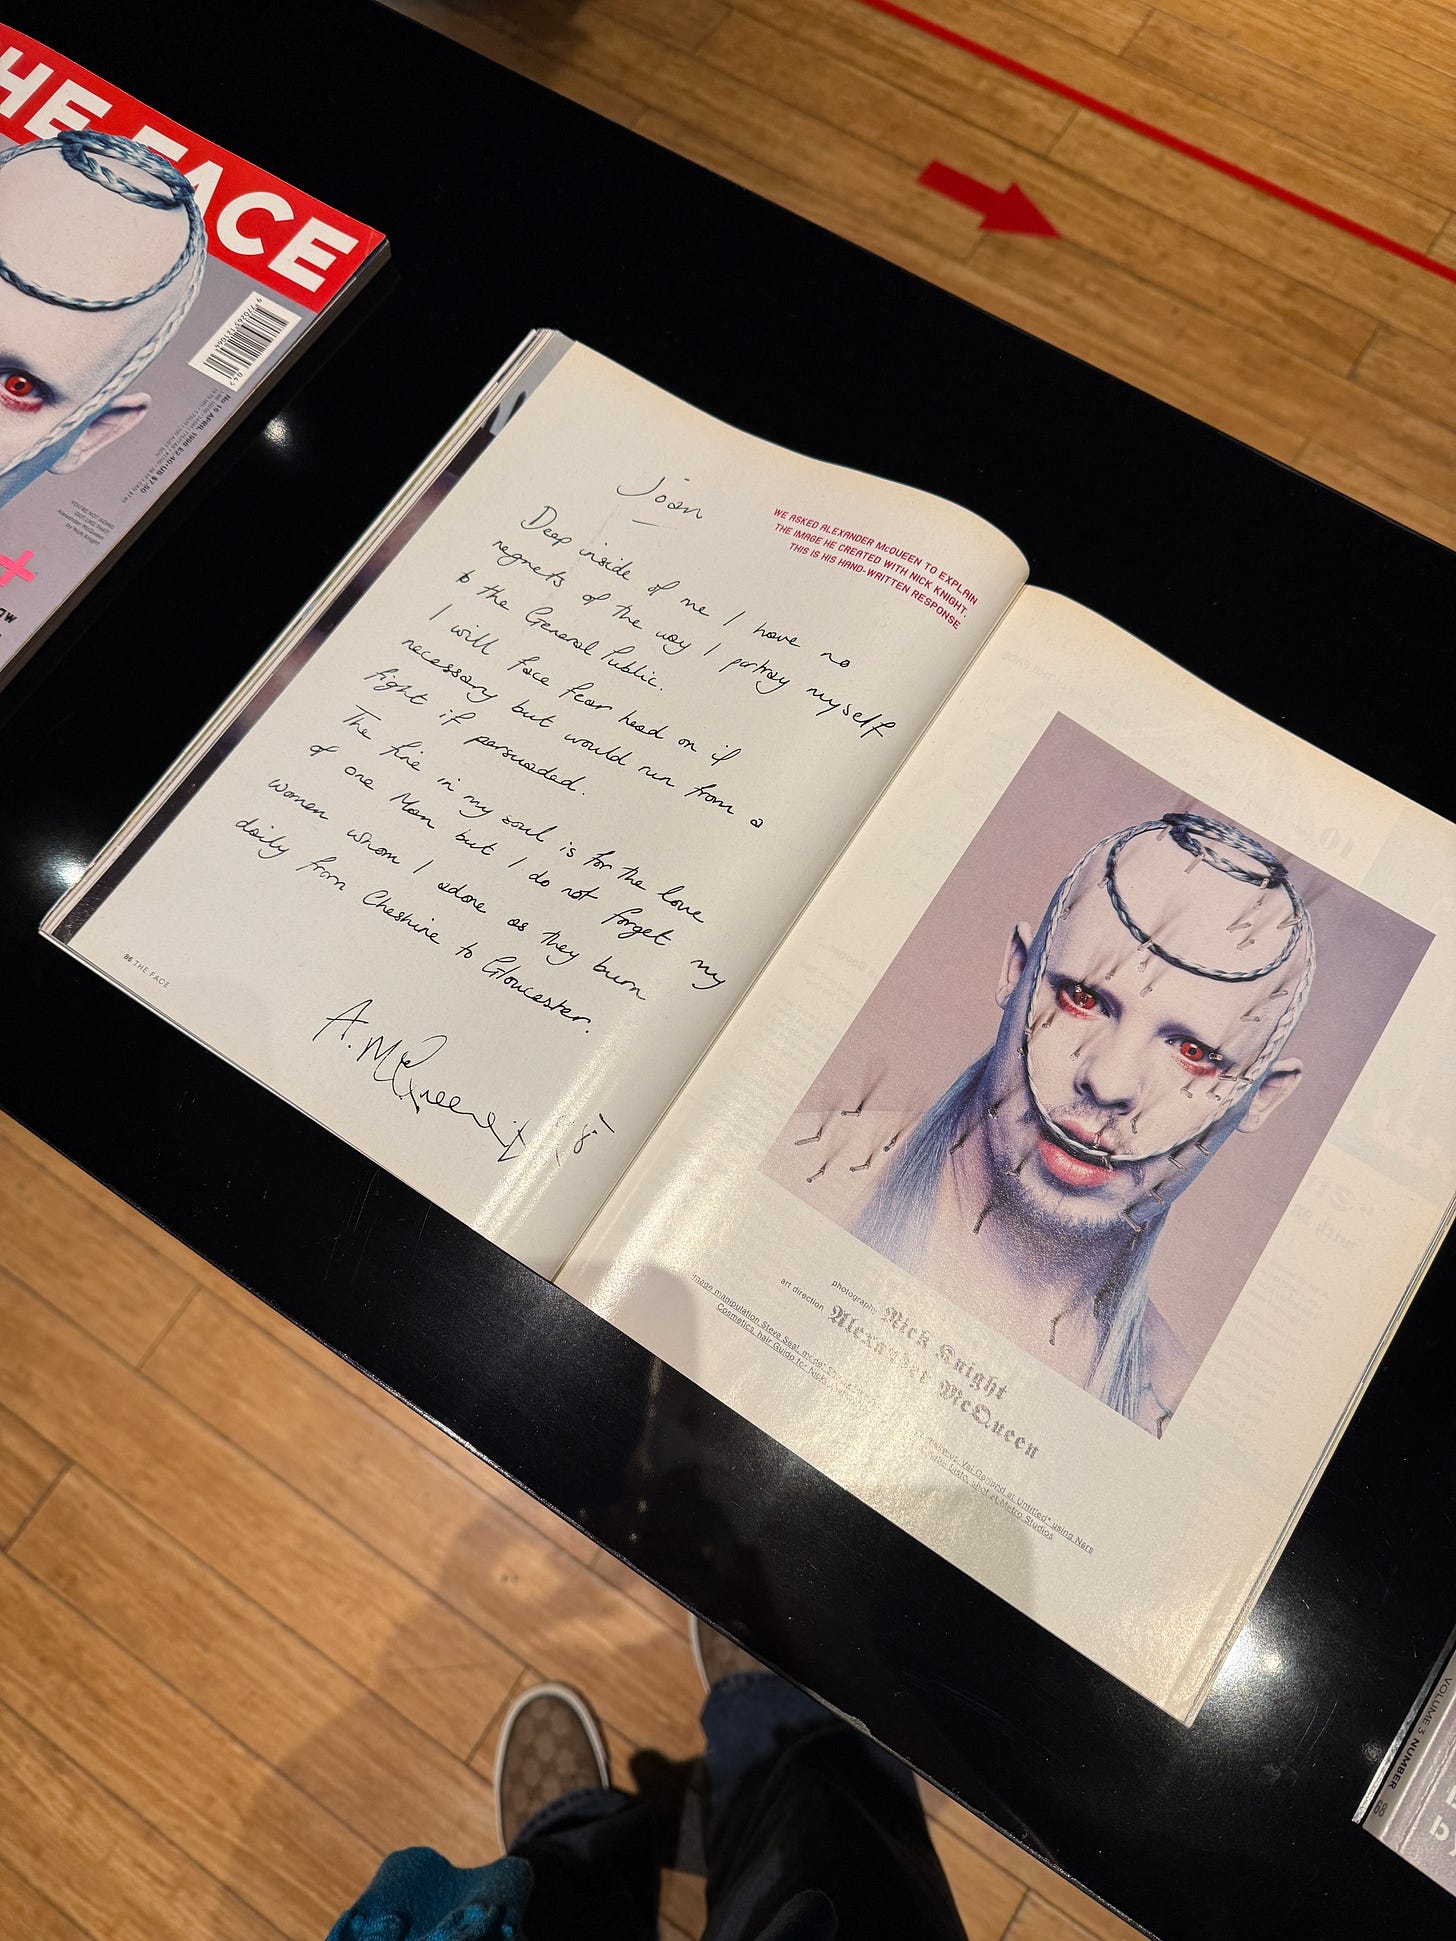 THE FACE
No 15 APRIL 1998 £2.40 • US $7.50
YOU'RE NOT GOING
OUT LIKE THAT!
Alexander McQueen
by Nick Knight
+
Joan
Deep inside of me I have no
regrets of the way I portray myself
to the General Public.
I will face fear head on if
necessary but would run from a
fight if persuaded.
The fire in my soul is for the love
of one Man but I do not forget my
women whom I adore as they burn
daily from Cheshire to Gloucester.
A. McQueen
WE ASKED ALEXANDER McQUEEN TO EXPLAIN
THE IMAGE HE CREATED WITH NICK KNIGHT.
THIS IS HIS HAND-WRITTEN RESPONSE
86 THE FACE
photography Nick Knight
art direction Alexander McQueen
image manipulation Steve Seal make-up Val Garland at Untitled* using Nars
Cosmetics, hair Guido for Nicky shot at Metro Studios
VOLUME 3 NUMBER